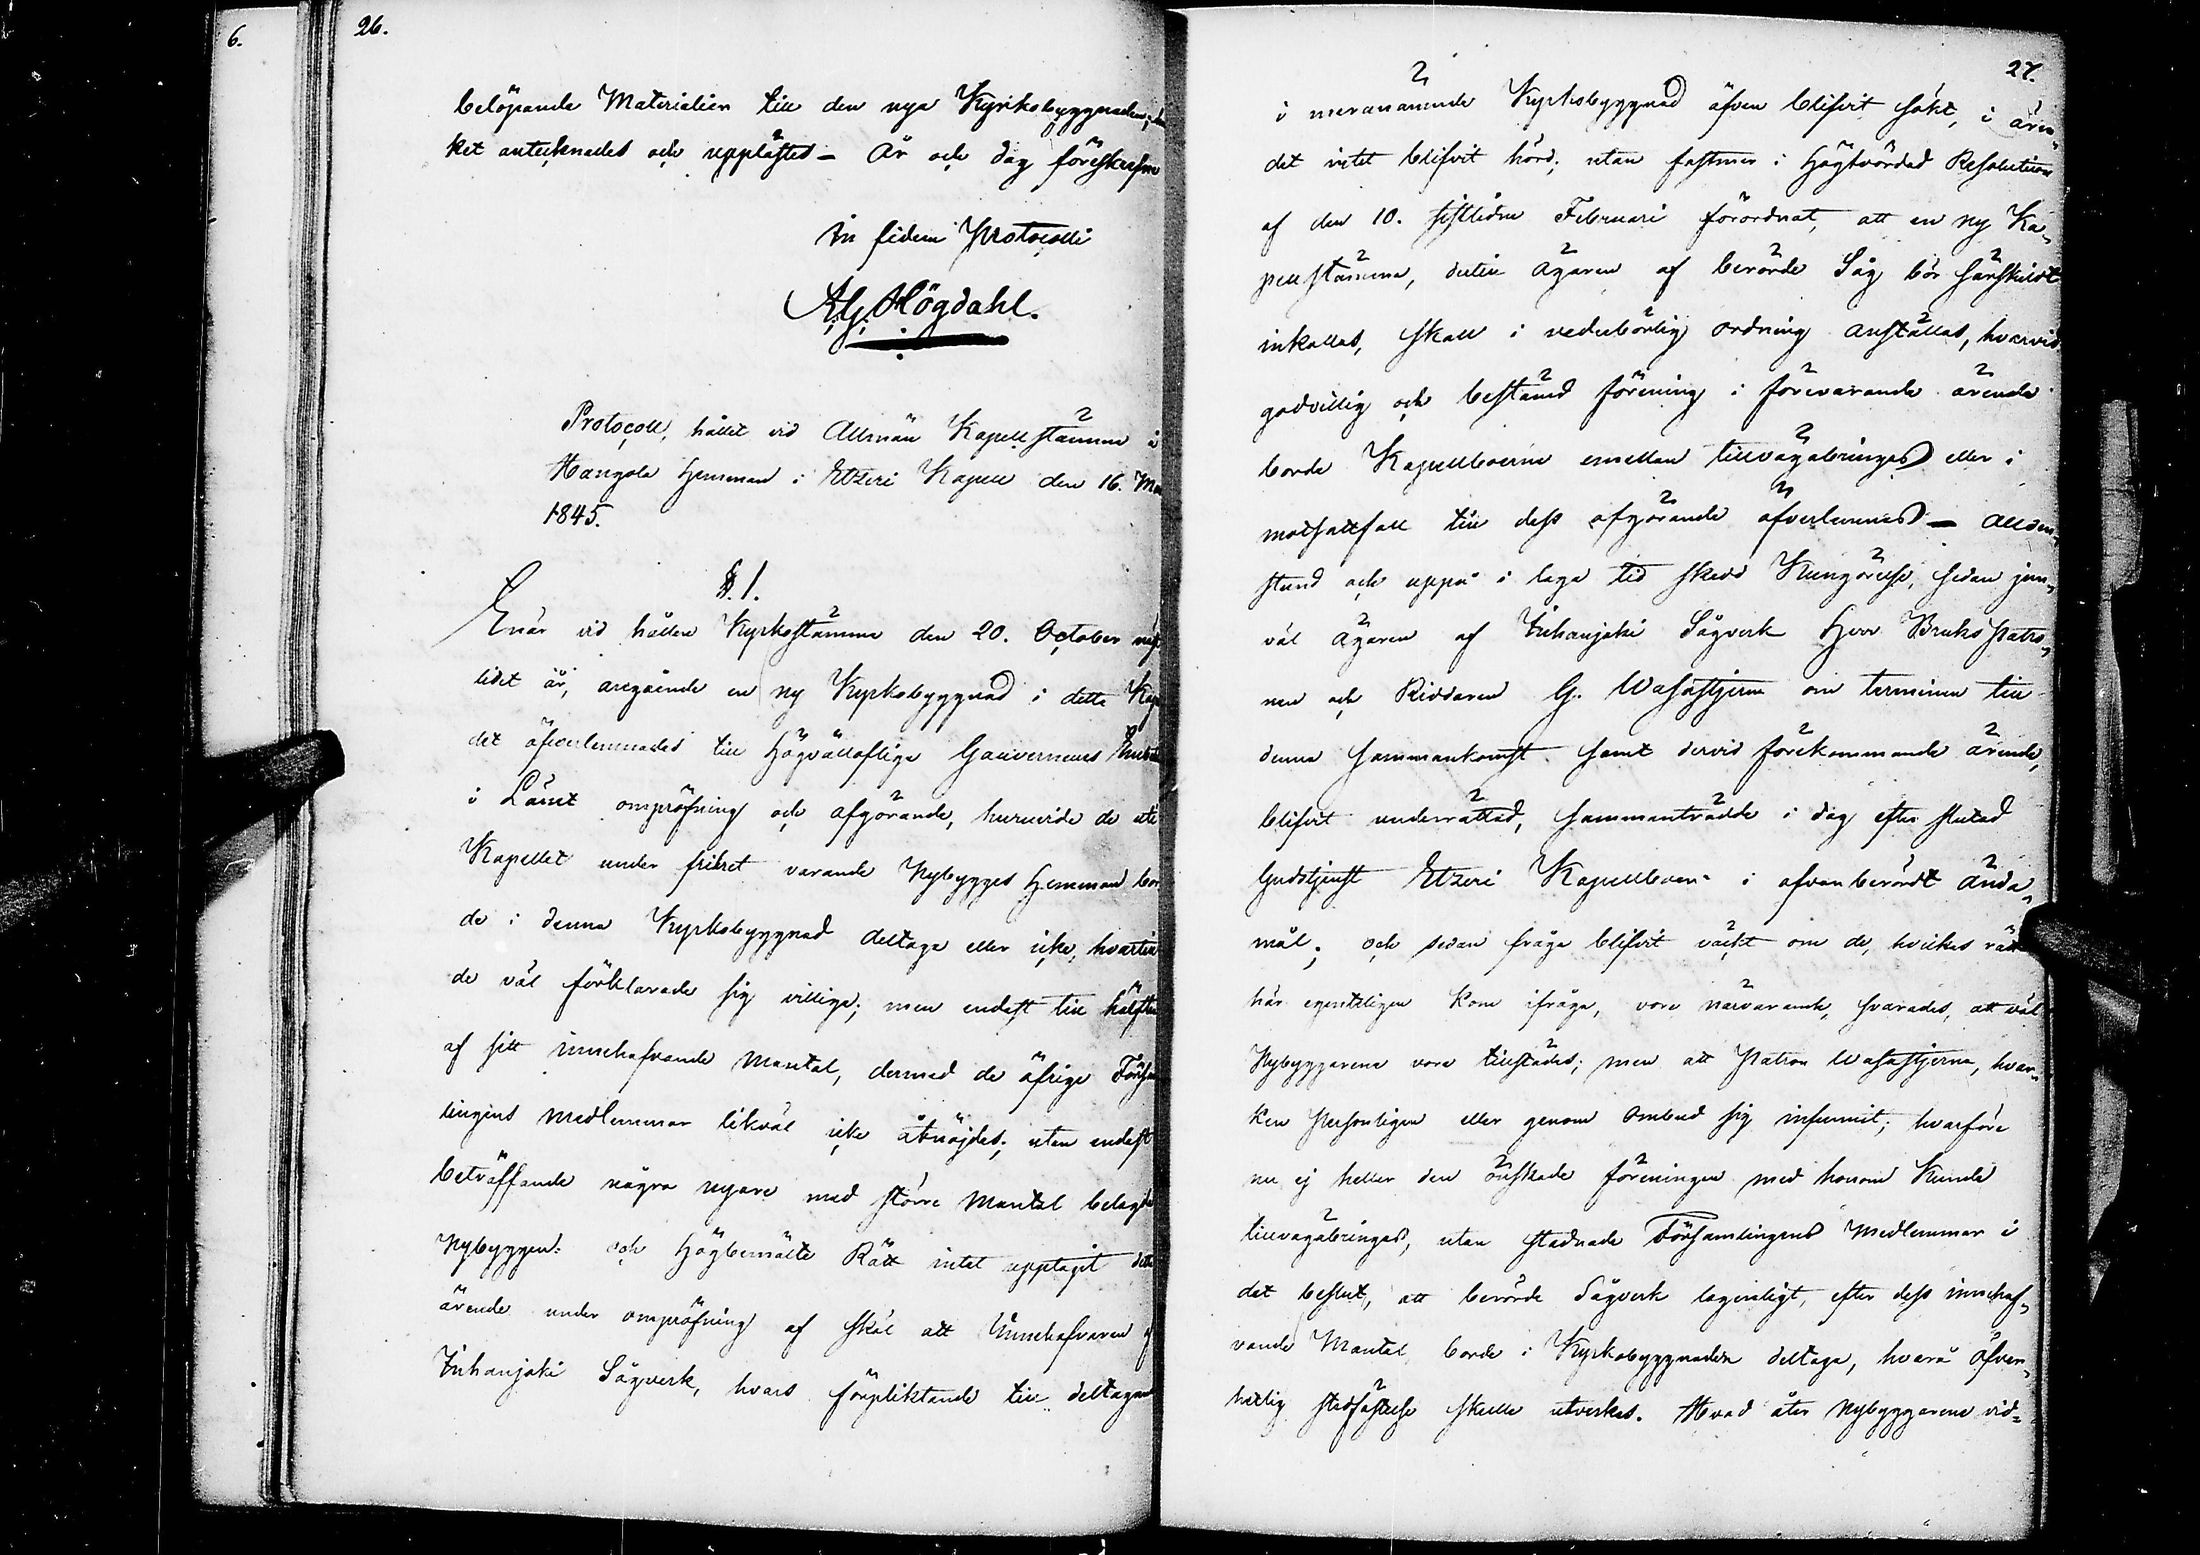 6.
26.
belöpande Materialier till den nya Kyrkobyggnaden;
ket antecknades och upplästes — År och dag föreskrefne
In fidem Protocolli
A.G. Högdahl.
Protocoll, hållet vid Allmän Kapellstämma å
Hangola Hemman i Etzeri Kapell den 16.
1845.
§. 1.
Enär vid hållen Kyrkostämma den 20. October
lidet år, angående en ny Kyrkobyggnad i detta
det öfverlemnades till Högvällofliga Gouverneurs
i Länet ompröfning och afgörande, huruvida de uti
Kapellet under frihet varande Nybygges Hemman bor
de i denna Kyrkobyggnad deltaga eller icke, hvartill
de väl förklarade sig villiga; men endast till hälften
af sitt innehafvande Mantal, dermed de öfrige
lingens medlemmar likväl icke åtnöjdes; utan endast
beträffande några nyare med större Mantal belagde
Nybyggen: och Högbemälte Rätt intet upptagit detta
ärende under ompröfning af skäl att Innehafvaren af
Inhanjoki Sågverk, hvars förpliktande till deltagande
27.
i meranämnde Kyrkobyggnad äfven blifvit sökt, i ären¬
det intet blifvit hörd; utan fastmer i Högtvördad Resolution
af den 10. sistlidne Februari förordnat, att en ny Ka¬
pellstämma, dertill ägaren af berörde Såg bör särskildt
inkallas, skall i vederbörlig ordning anställas, hvarvid
godvillig och bestämd förening i förevarande ärende
borde Kapellboerne emellan tillvägabringas eller i
motsattfall till dess afgörande öfverlemnas — Allden¬
stund och uppå i laga tid skedd Kungörelse, sedan jem¬
väl ägaren af Inhanjoki Sågverk Herr Brukspatro¬
nen och Riddaren G. Wasastjerna om terminen till
denna sammankomst samt dervid förekommande ärende,
blifvit underrättad, sammanträdde i dag efter slutad
Gudstjenst Etzeri Kapellboer i ofvanberördt ända¬
mål; och sedan fråga blifvit väckt om de, hvilkas rätt
här egentligen kom ifråga, voro närvarande, svarades, att väl
Nybyggarena voro tillstädes; men att Patron Wasastjerna, hvar¬
ken personligen eller genom ombud sig infunnit; hvarföre
nu ej heller den önskade föreningen med honom kunde
tillvägabringas, utan stadnade Församlingens Medlemmar i
det beslut, att berörde Sågverk lagenligt, efter dess innehaf¬
vande Mantal, borde i Kyrkobyggnaden deltaga, hvarå öfver¬
hetlig stadfästelse skulle utverkas. Hvad åter Nybyggarene vid=